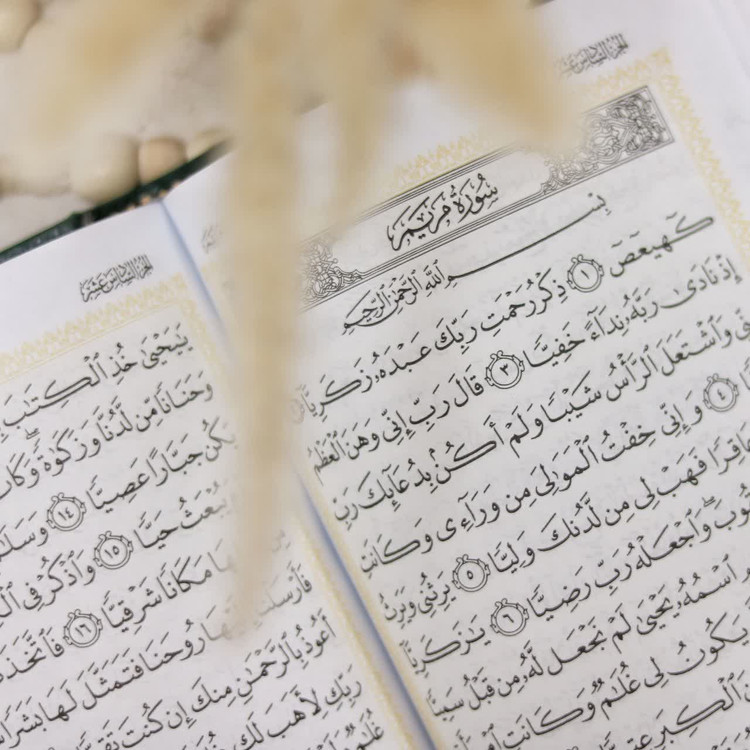 الجزء السادس عشر
سُورَةُ مَرْيَمَ
بِسْمِ ٱللَّهِ ٱلرَّحْمَٰنِ ٱلرَّحِيمِ
كٓهيعٓصٓ ١ ذِكْرُ رَحْمَتِ رَبِّكَ عَبْدَهُۥ زَكَرِيَّآ
إِذْ نَادَىٰ رَبَّهُۥ نِدَآءً خَفِيًّا ٣ قَالَ رَبِّ إِنِّى وَهَنَ ٱلْعَظْمُ
وَٱشْتَعَلَ ٱلرَّأْسُ شَيْبًا وَلَمْ أَكُنۢ بِدُعَآئِكَ رَبِّ
٤ وَإِنِّى خِفْتُ ٱلْمَوَٰلِىَ مِن وَرَآءِى وَكَانَتِ
فَهَبْ لِى مِن لَّدُنكَ وَلِيًّا ٥ يَرِثُنِى وَيَرِثُ
وَٱجْعَلْهُ رَبِّ رَضِيًّا ٦ يَٰزَكَرِيَّآ
ٱسْمُهُۥ يَحْيَىٰ لَمْ نَجْعَل لَّهُۥ مِن قَبْلُ سَمِيًّا
يَكُونُ لِى غُلَٰمٌ وَكَانَتِ
ٱلْكِبَرِ
الجزء السادس عشر
يَٰيَحْيَىٰ خُذِ ٱلْكِتَٰبَ
وَحَنَانًا مِّن لَّدُنَّا وَزَكَوٰةً وَكَانَ
يَكُن جَبَّارًا عَصِيًّا ١٤ وَسَلَٰمٌ
يُبْعَثُ حَيًّا ١٥ وَٱذْكُرْ فِى
مَكَانًا شَرْقِيًّا ١٦ فَٱتَّخَذَتْ
فَأَرْسَلْنَآ رُوحَنَا فَتَمَثَّلَ لَهَا بَشَرًا
أَعُوذُ بِٱلرَّحْمَٰنِ مِنكَ إِن كُنتَ تَقِيًّا
رَبِّكِ لِأَهَبَ لَكِ